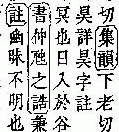 切集韻下老切
吳詳吳字註
冥也日入於谷
書仲虺之誥兼
註幽昧不明也